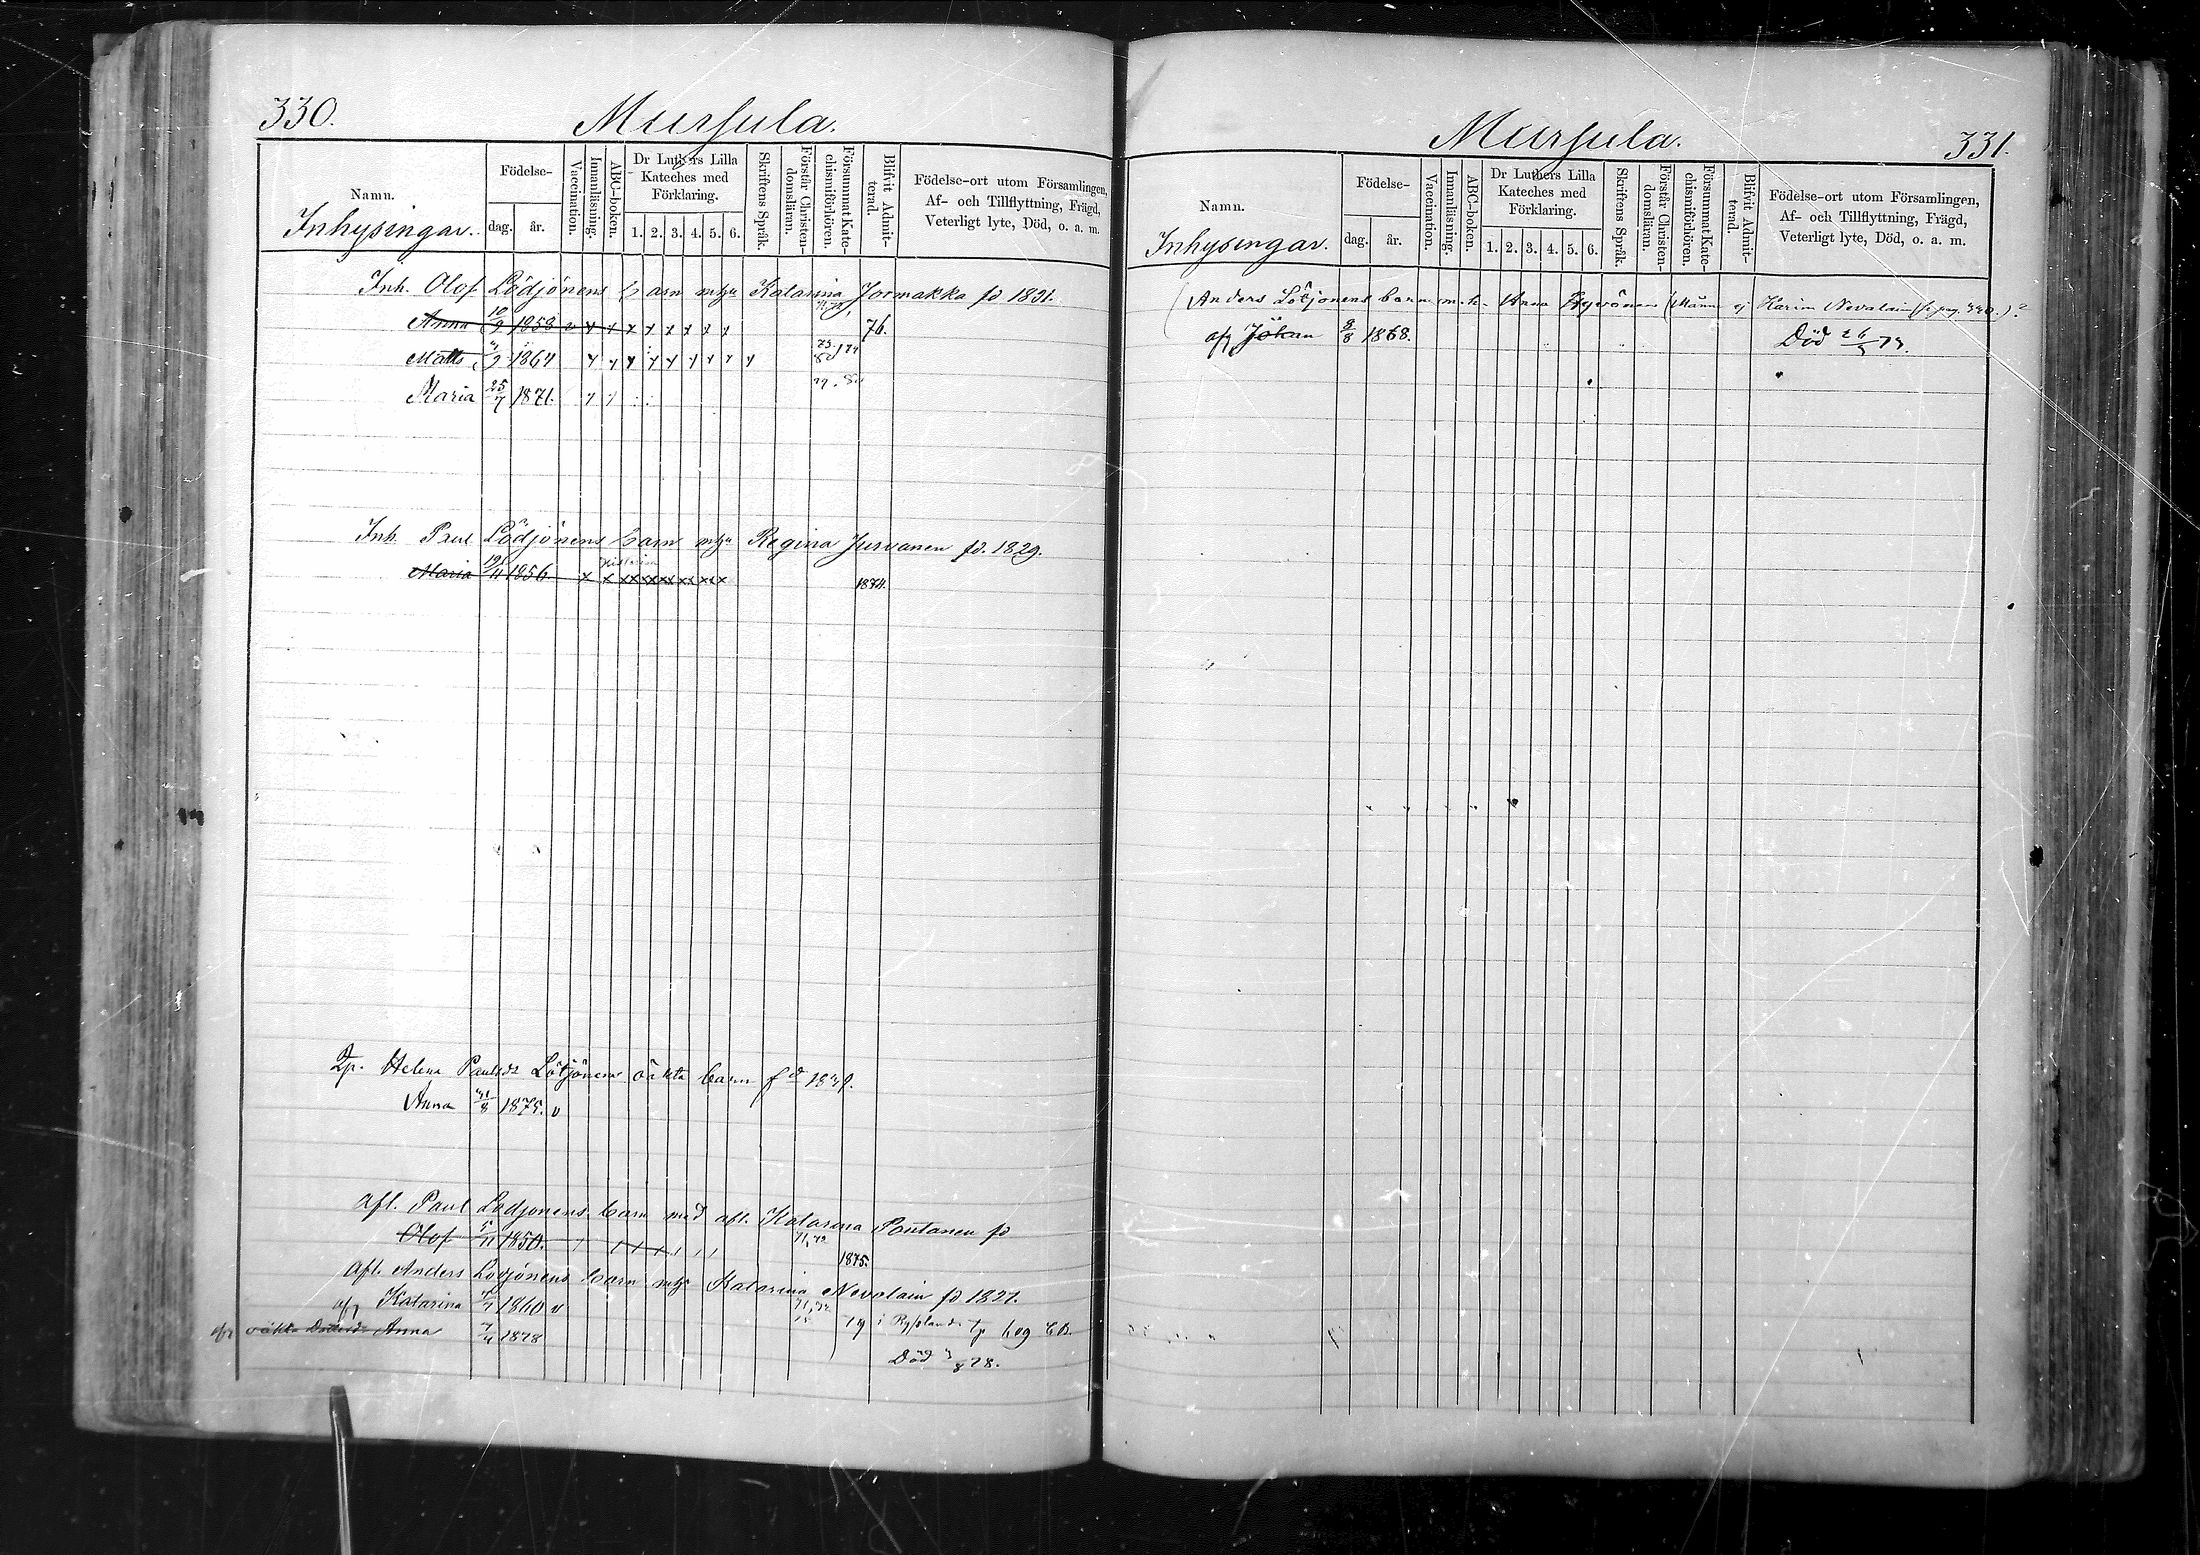 330.
Mursula.
Namn.
Inhysingar.
Födelse-
dag.
år.
Vaccination.
Innanläsning.
ABC-boken.
Dr Luthers Lilla
Kateches med
Förklaring.
1. 2. 3. 4. 5. 6.
Skriftens Språk.
Förstår Christen-
domsläran.
Försummat Kate-
chismiförhören.
Blifvit Admit-
terad.
Födelse-ort utom Församlingen,
Af- och Tillflyttning, Frägd,
Veterligt lyte, Död, o. a. m.
Inh. Olof Lödjönens barn m. Katarina Jormakka fd 1831.
Anna 10/9 1858 v x x x x x x x x 76.
Matts 1864 x x x x x x x x x
Maria 25/7 1871. x x
Inh. Paul Lödjönens barn m. Regina Jurvanen fd. 1829.
Maria 1856. x x xx xx xx xx xx 1874.
Helena Paulsdr Lötjönens oäkta barn fd
Anna 1875. v
Afl. Paul Lödjönens barn med afl. Katarina Pontanen fd
Olof 5/11 1850. 71, 72 1875.
Afl. Anders Lödjönens barn m. Katarina Nevalain fd 1827.
Katarina 1860 v 71, 72
oäkta Anna 1878
Död 78.
Mursula.
331.
Namn.
Inhysingar.
Födelse-
dag.
år.
Vaccination.
Innanläsning.
ABC-boken.
Dr Luthers Lilla
Kateches med
Förklaring.
1. 2. 3. 4. 5. 6.
Skriftens Språk.
Förstår Christen-
domsläran.
Försummat Kate-
chismiförhören.
Blifvit Admit-
terad.
Födelse-ort utom Församlingen,
Af- och Tillflyttning, Frägd,
Veterligt lyte, Död, o. a. m.
(Anders Lötjonens barn m. h. Anna Hyvönen ej Karin Nevalain
Johan 8/8 1868. Död 26/3 73.